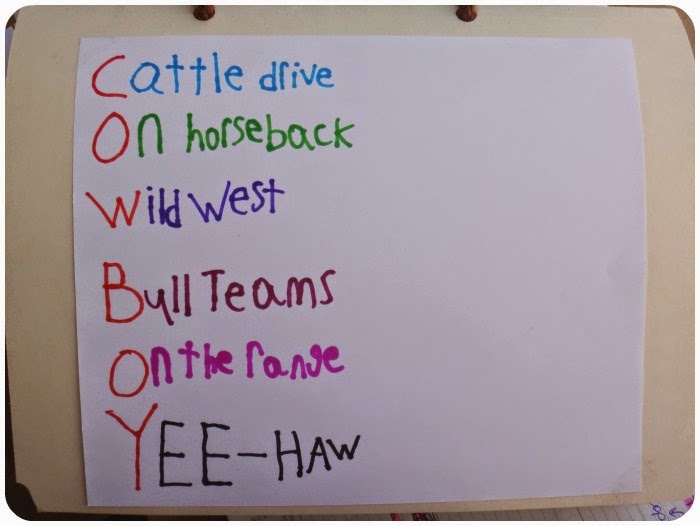 Cattle drive
On horseback
Wild West
Bull Teams
On the range
YEE-HAW